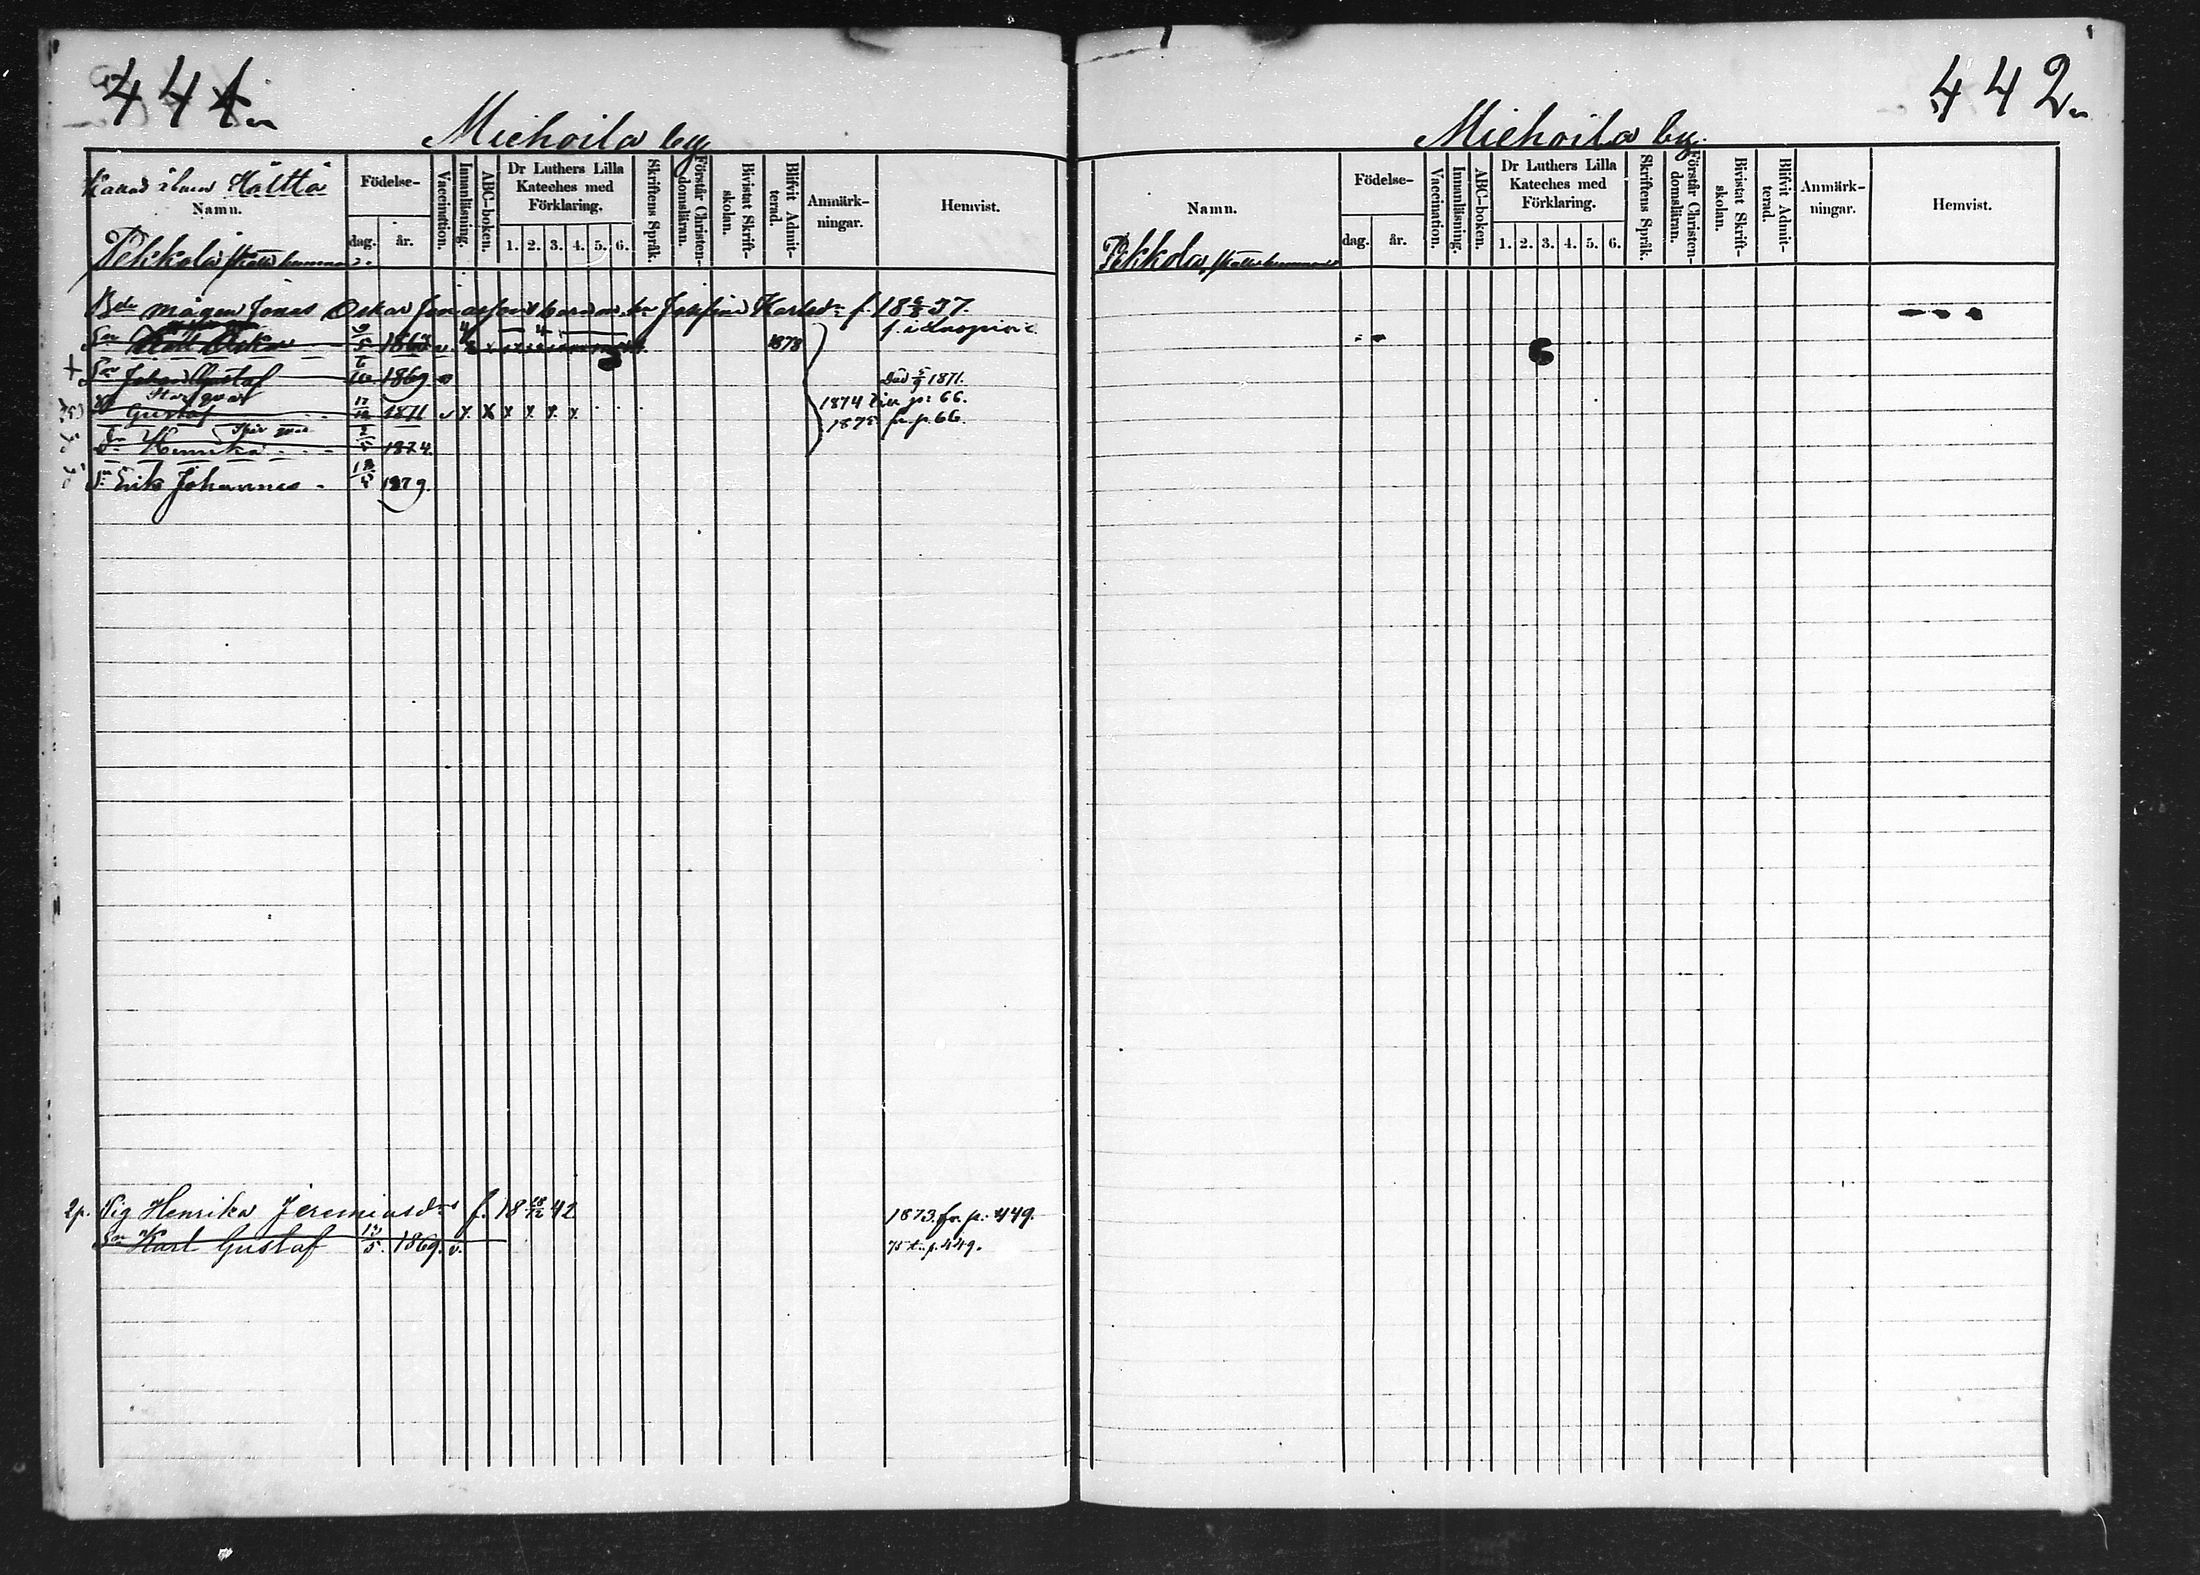 441.
Miehoila by
Hölttä
Namn.
Födelse-
dag.
år.
Vaccination.
Innanläsning.
ABC-boken.
Dr Luthers Lilla
Kateches med
Förklaring.
1. 2. 3. 4. 5. 6.
Skriftens Språk.
Förstår Christen-
domsläran.
Bivistat Skrift-
skolan.
Blifvit Admit-
terad.
Anmärk-
ningar.
Hemvist.
Pekkola
Bde mågen Jonas Oskar Josefina Karlsdr f. 18 37.
Sn Karl Oskar 1878
Sn Johan Gustaf 6/10 1869 Död 5/9 1871.
Gustaf 17/12 1871 v x x x x x x 1874 till p: 66.
1875 fr. p. 66.
Dr Henrika 1874.
Sn Erik Johannes 1879.
2p. Pig Henrika Jeremiasdr f. 18 18/12 42 1873. fr. p. 449.
Sn Karl Gustaf 13/5. 1869. v. 75 t. p. 449.
442.
Miehoila by.
Namn.
Födelse-
dag.
år.
Vaccination.
Innanläsning.
ABC-boken.
Dr Luthers Lilla
Kateches med
Förklaring.
1. 2. 3. 4. 5. 6.
Skriftens Språk.
Förstår Christen-
domsläran.
Bivistat Skrift-
skolan.
Blifvit Admit-
terad.
Anmärk-
ningar.
Hemvist.
Pekkola